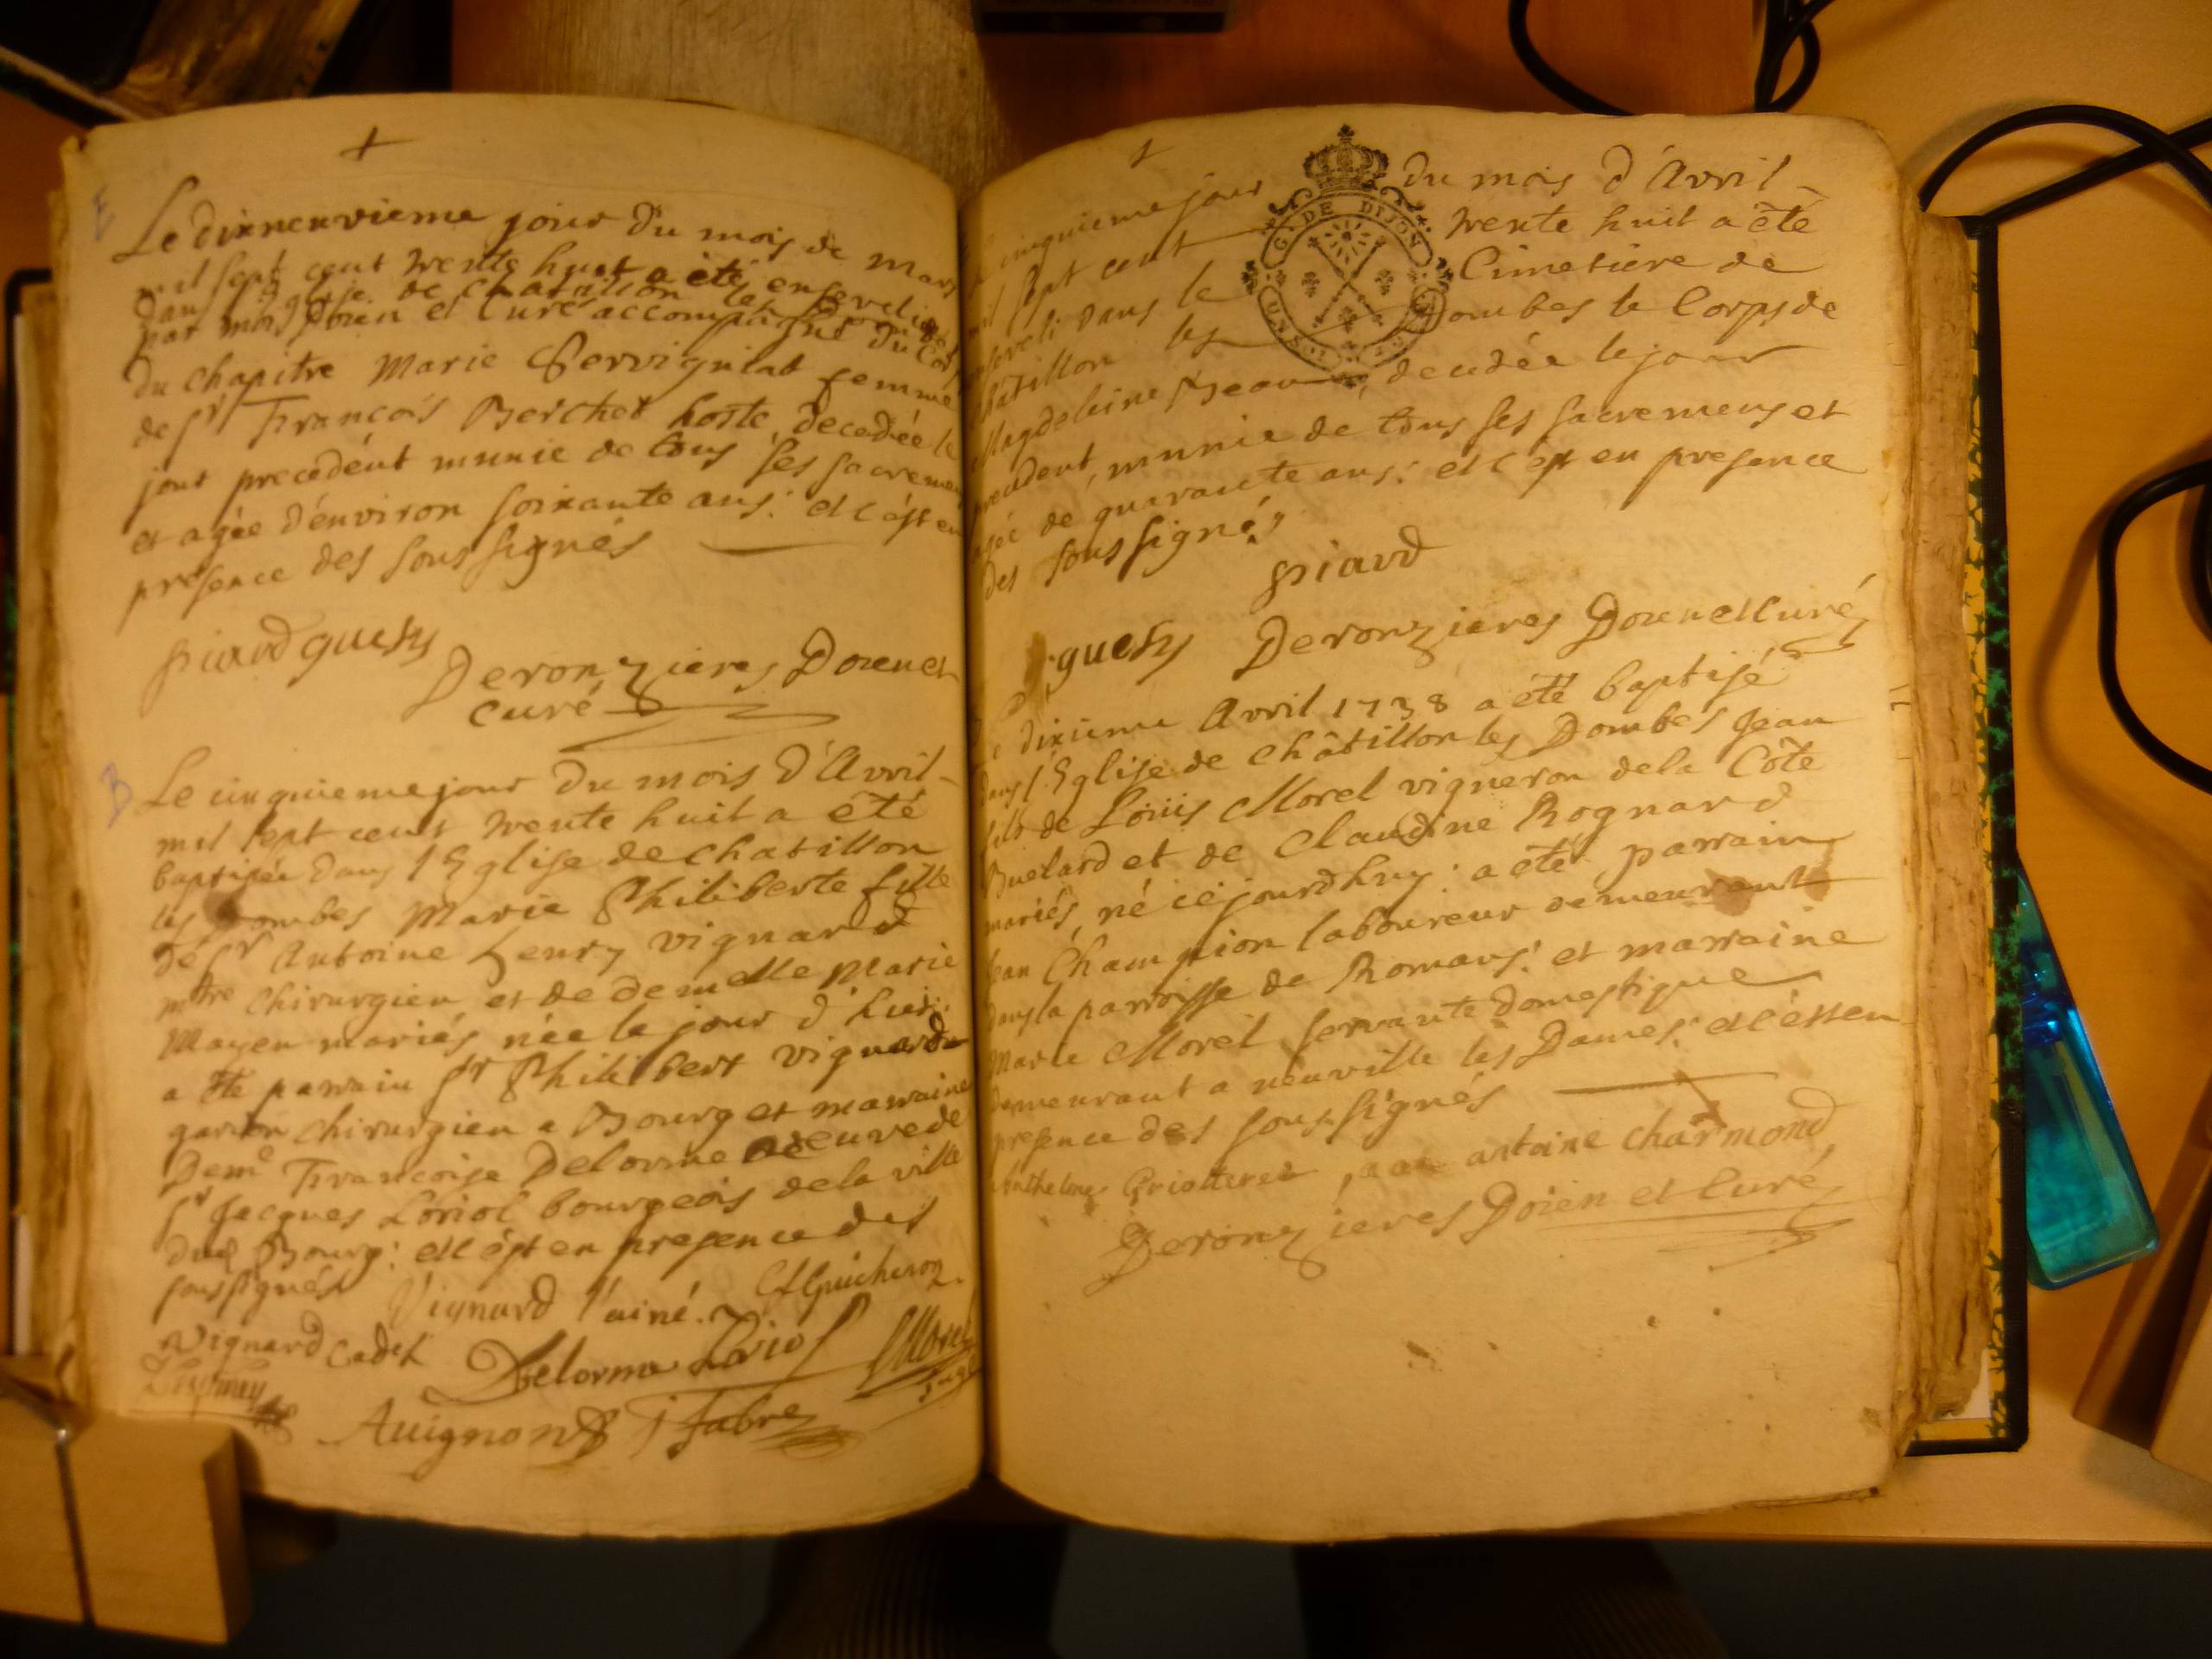 Le dixneuvieme jour du mois de mars
mil sept cent trente huit a été ensevelie
dans l'Eglise de chatillon les Dombes
par moy Doien et Curé accompagné du Corps
du chapitre Marie Pervigniat femme
de Sr François Berchet hoste, decedée le
jour precedent munie de tous ses sacremens
et agée d'environ soixante ans: et c'est en
présence des soussignés
piard guesy
Deronzieres Doien et
Curé
B
Le cinquieme jour du mois d'Avril
mil sept cent trente huit a été
baptisée dans l'Eglise de chatillon
les Dombes Marie Philiberte fille
de Sr Antoine henry vignard
mtre chirurgien et de demelle Marie
Mayen mariés née le jour d'hier:
a été parrain Sr Philibert vignard
garçon chirurgien a Bourg et marraine
Deme Françoise Delorme veuve de
Sr Jacques Loriol bourgeois de la ville
dud Bourg: et c'est en presence des
soussignés
Vignard l'ainé. Guicheron
Vignard Cadet Delorme Loriol Morel
juge
Avignon J Fabre
cinquieme jour du mois d'Avril
mil sept cent trente huit a été
enseveli dans le Cimetiere de
châtillon les Dombes le Corps de
G. DE DIJON
Magdeleine decedée le jour
precedent, munie de tous ses sacremens et
agée de quarante ans: et c'est en presence
des soussignés
piard
guesy Deronzieres Doien et Curé
Le dixieme Avril 1738 a été baptisé
dans l'Eglise de châtillon les Dombes Jean
fils de Loüis Morel vigneron de la Côte
Buelard et de Claudine Rognard
mariés, né cejourdhuy: a été parrain
Jean Champion laboureur demeurant
dans la parroisse de Romans: et marraine
Marie Morel servante domestique
demeurant a neuville les Dames: et c'est en
presence des soussignés
Anthelme Griotteret, antoine charmond,
Deronzieres Doien et Curé